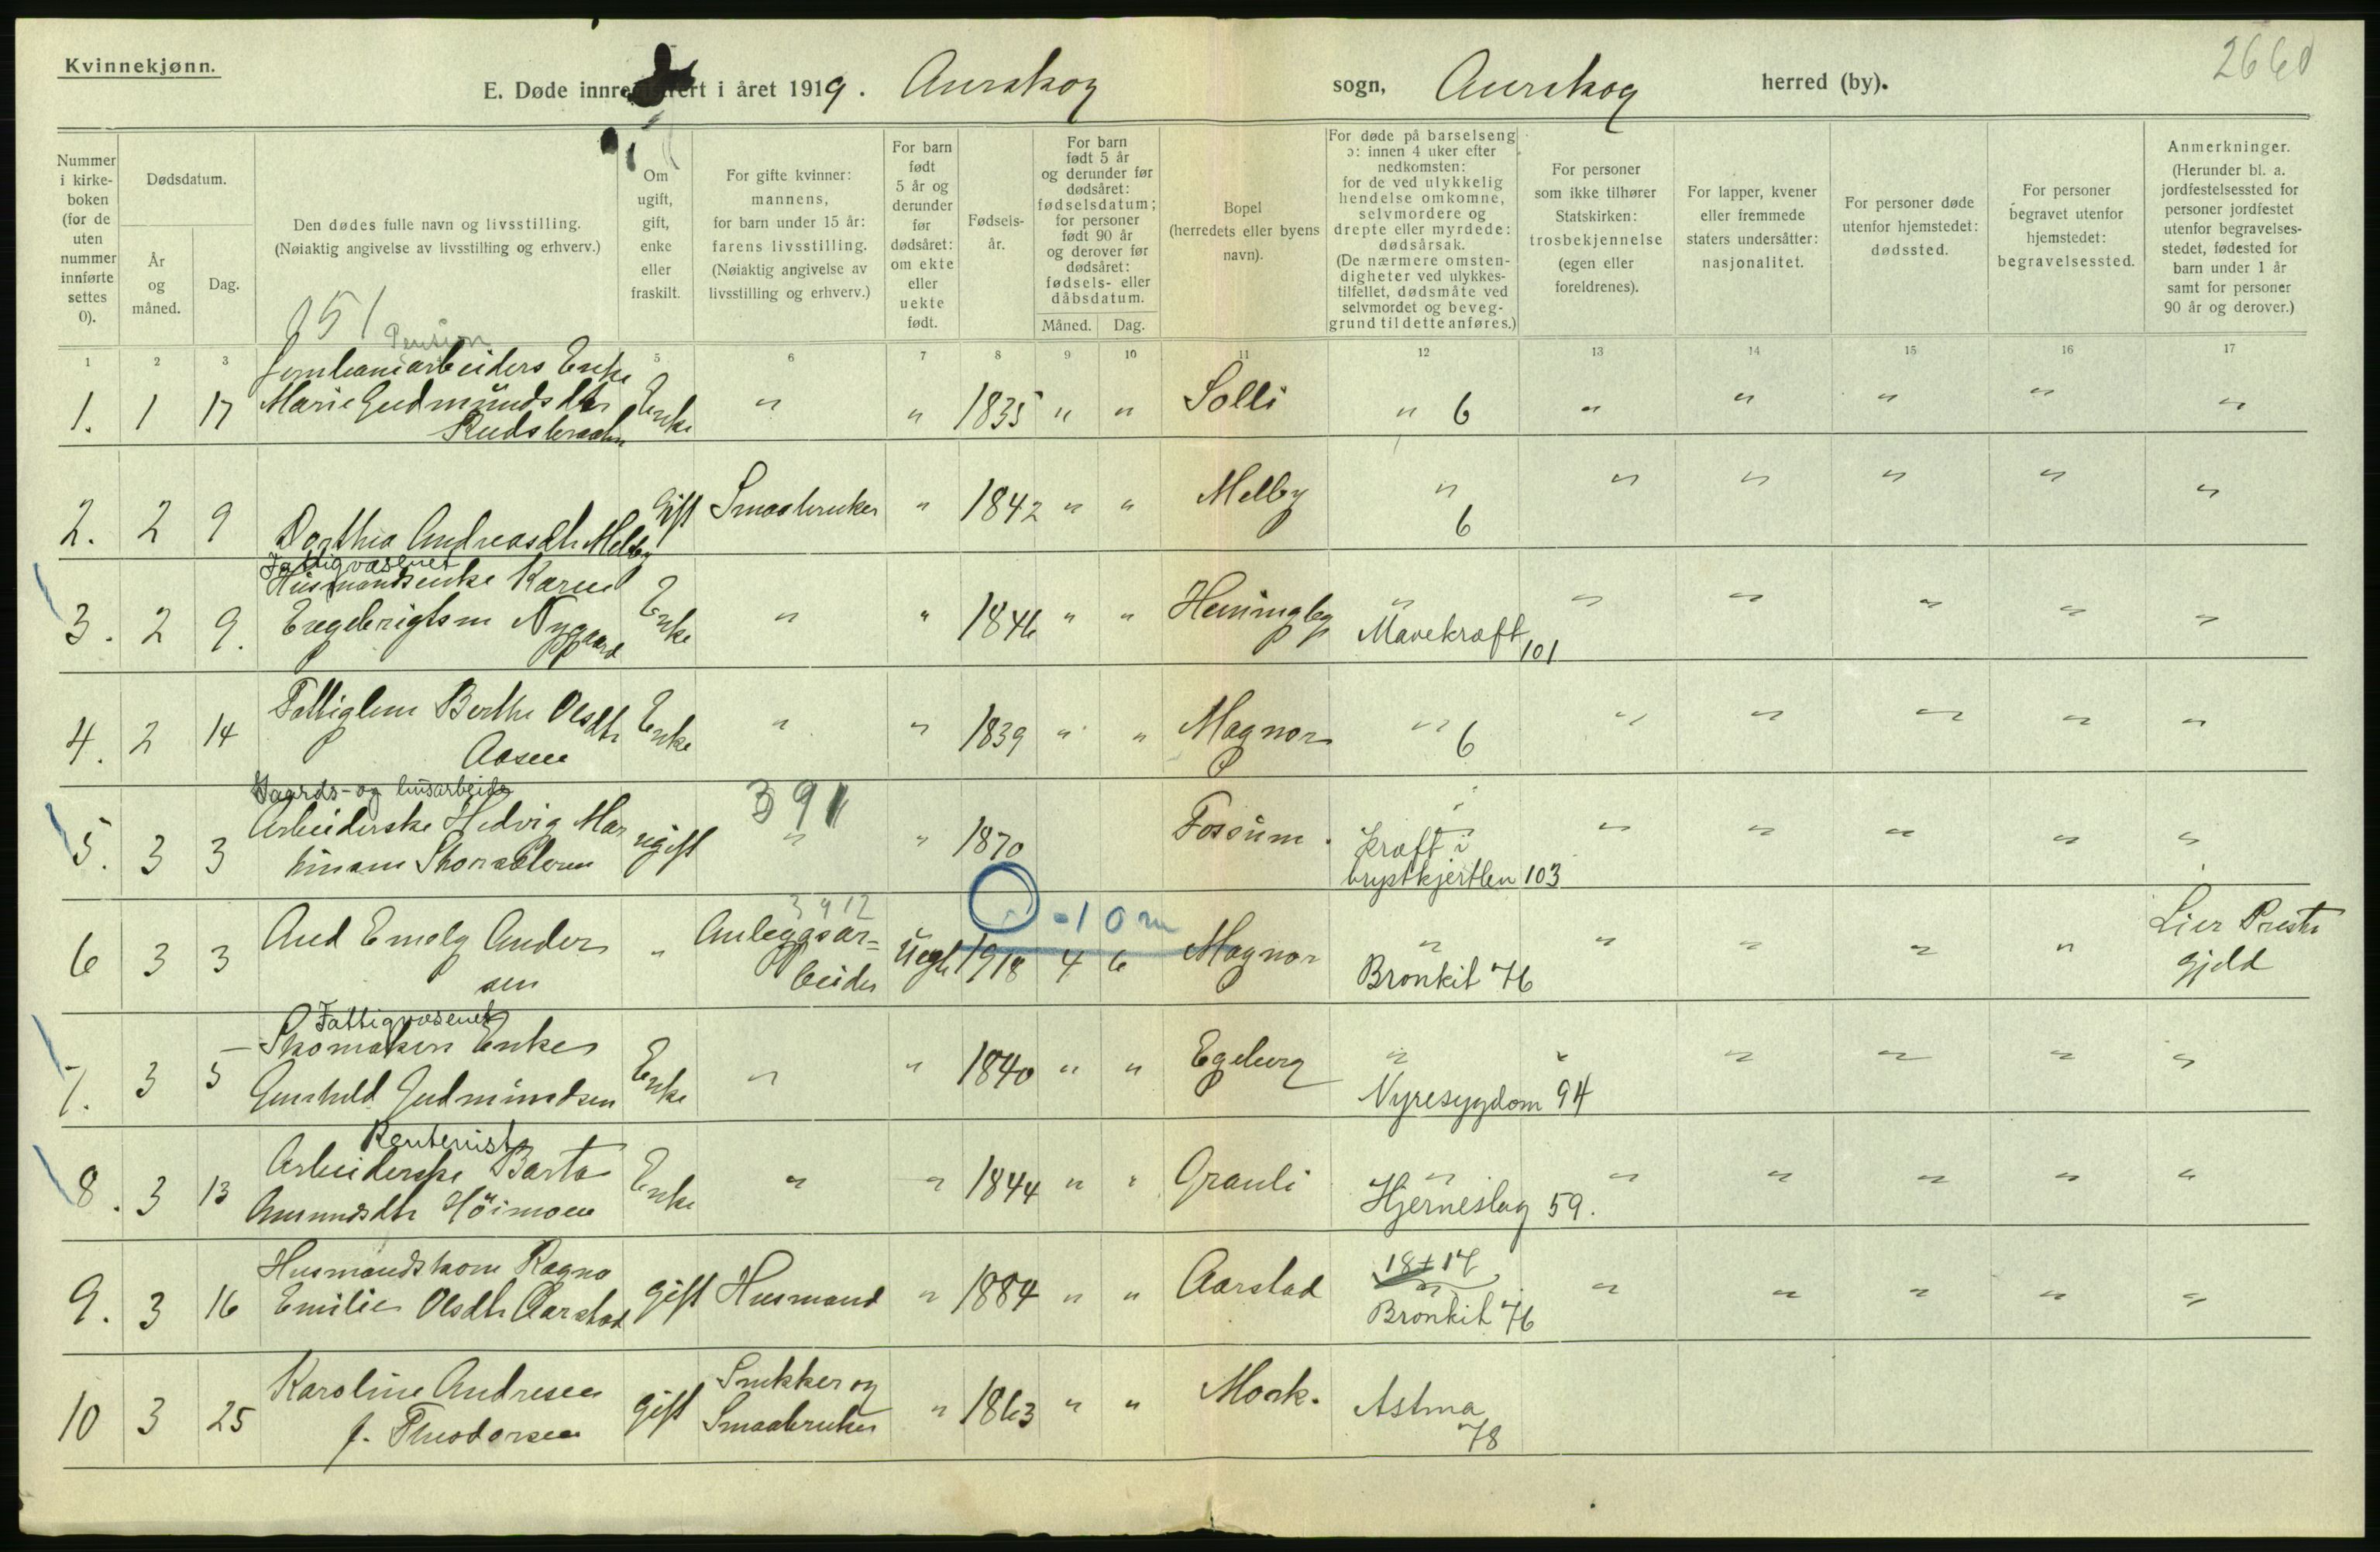 Kvinnekjønn.
2660
E. Døde innregistrert i året 1919. Aurskog sogn, Aurskog herred (by).
Nummer i kirkeboken (for de uten nummer innførte settes 0).
Dødsdatum.
År og måned.
Dag.
Den dødes fulle navn og livsstilling.
(Nøiaktig angivelse av livsstilling og erhverv.)
Om ugift, gift, enke eller fraskilt.
For gifte kvinner: mannens, for barn under 15 år: farens livsstilling. (Nøiaktig angivelse av livsstilling og erhverv.)
For barn født 5 år og derunder før dødsåret: om ekte eller uekte født.
Fødselsår.
For barn født 5 år og derunder før dødsåret: fødselsdatum; for personer født 90 år og derover før dødsåret: fødsels- eller dåbsdatum.
Måned. Dag.
Bopel (herredets eller byens navn).
For døde på barselseng ɔ: innen 4 uker efter nedkomsten: for de ved ulykkelig hendelse omkomne, selvmordere og drepte eller myrdede: dødsårsak. (De nærmere omstendigheter ved ulykkestilfellet, dødsmåte ved selvmordet og beveggrund til dette anføres.)
For personer som ikke tilhører Statskirken: trosbekjennelse (egen eller foreldrenes).
For lapper, kvener eller fremmede staters undersåtter: nasjonalitet.
For personer døde utenfor hjemstedet: dødssted.
For personer begravet utenfor hjemstedet: begravelsessted.
Anmerkninger. (Herunder bl. a. jordfestelsessted for personer jordfestet utenfor begravelsesstedet, fødested for barn under 1 år samt for personer 90 år og derover.)
951 Pension
1 2 3 5 6 7 8 9 10 11 12 13 14 15 16 17
Jernbanearbeiders Enke
1. 1 17 Marie Gudmundsdtr Enke " " 1835 " " Solli " 6 " " " " "
Rudsbraaten
2. 2 9 Dorthea Andreasdtr Melby Gift Smaabruker " 1842 " " Melby " 6 " " " " "
Fattigvæsenet
Husmandsenke Karen
3. 2 9. Engebrigtsen Nygaard Enke " " 1846 " " Henningby " Mavekræft 101 " " " " "
4. 2 14 Fattiglem Berthe Olsdtr Enke " " 1839 " " Magnor " 6 " " " " "
Aasen
Gaards- og husarbeide
391
5. 3 3 Arbeiderske Hedvig Mar ugift " " 1870 Fossum. " Kræft i " " " " "
brystkjertlen 103
3912
-10 m
6 3 3 Aud Emely Ander " Anleggsar= Uegte 1918 4 6 Magnor " " " " " Lier Preste
sen beider Bronkit 76 gjeld
Fattigvæsenet
Skomakers Enke
7. 3 5 Gunhild Gudmundsen Enke " " 1840 " " Egeberg " " " " " "
Nyresygdom 94
Rentenist
8. 3 13 Arbeiderske Berta Enke " " 1844 " " Grauli " " " " " "
Amundsdtr Höimoen Hjerneslag 59.
Husmandskone Ragna 18+17
9. 3 16 Emilie Olsdtr Aarstad gift Husmand " 1884 " " Aarstad " " " " " "
Bronkit 76
10 3 25 Karoline Andresen gift Snekker og " 1863 " " Mork. Astma
f. Theodorsen Smaabruker 78